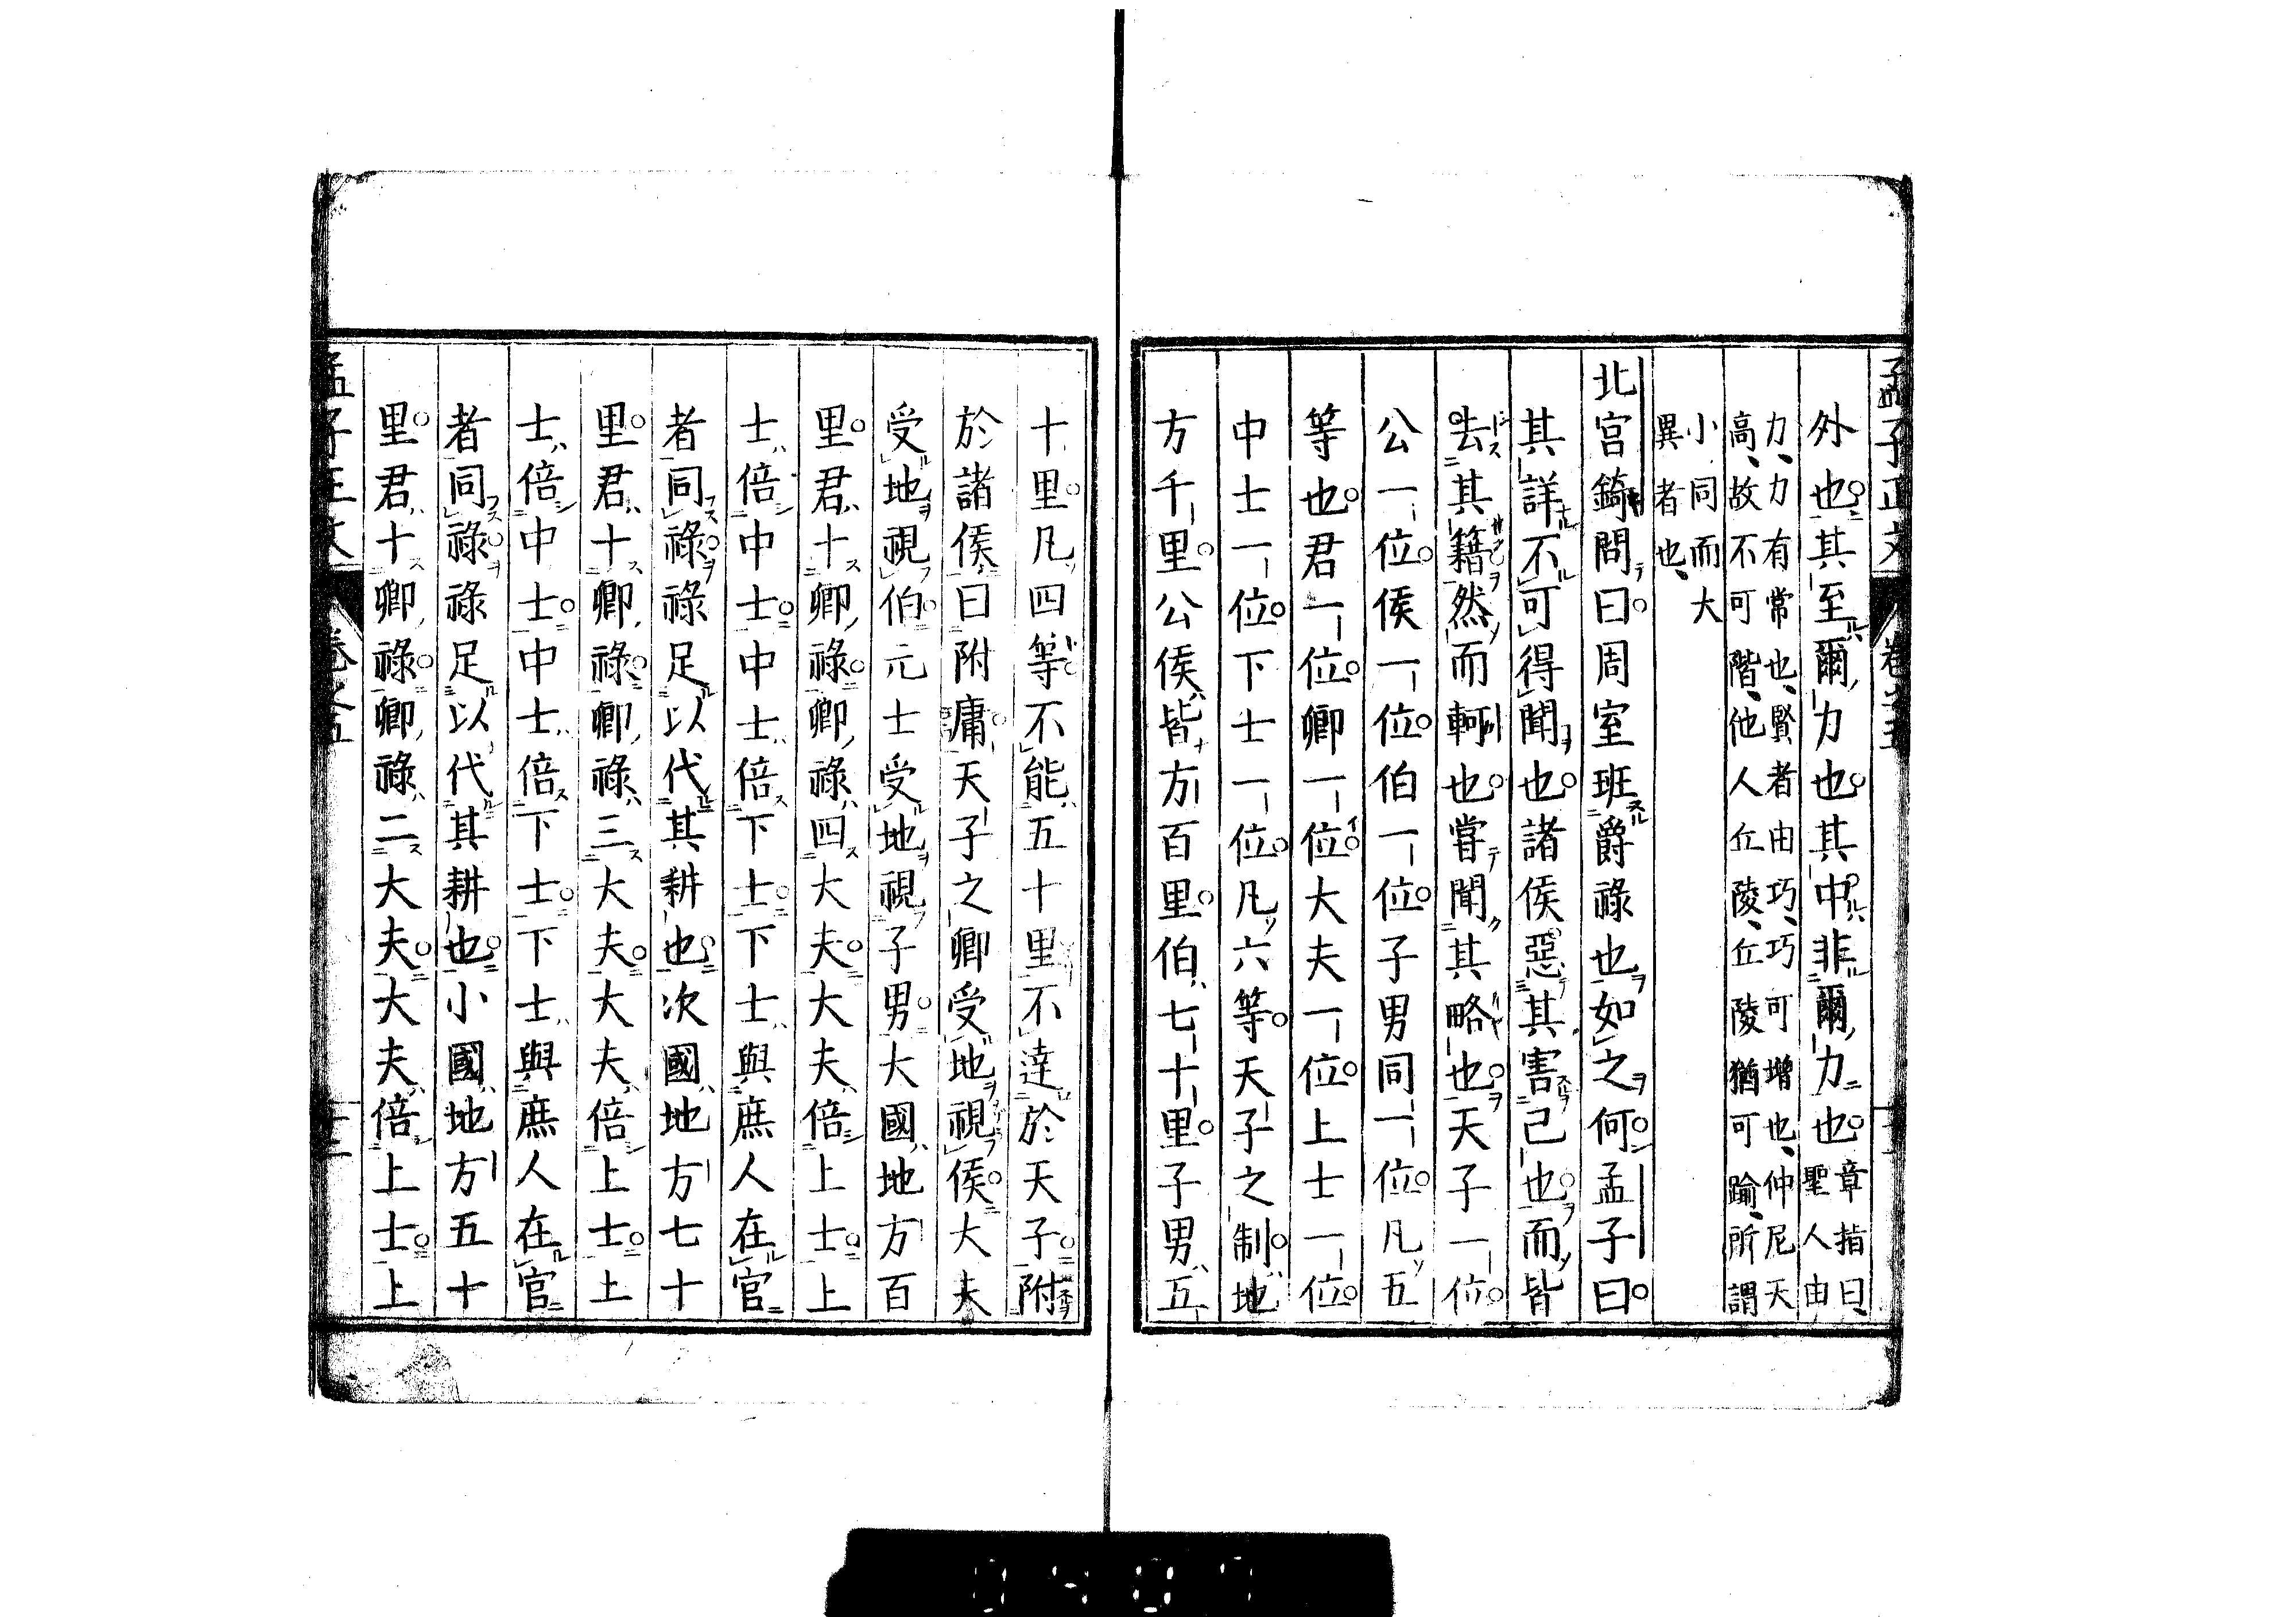 孟子正文　卷之五
外也其至爾力也其中非爾力也章指曰聖人由
力力有常也賢者由巧巧可增也仲尼天
高故不可階他人丘陵丘陵猶可踰所謂
小同而大
異者也
北宮錡問曰周室班爵祿也如之何孟子曰
其詳不可得聞也諸侯惡其害己也而皆
去其籍然而軻也嘗聞其略也天子一位
公一位侯一位伯一位子男同一位凡五
等也君一位卿一位大夫一位上士一位
中士一位下士一位凡六等天子之制地
方千里公侯皆方百里伯七十里子男五
十里凡四等不能五十里不達於天子附
於諸侯曰附庸天子之卿受地視侯大夫
受地視伯元士受地視子男大國地方百
里君十卿祿卿祿四大夫大夫倍上士上
士倍中士中士倍下士下士與庶人在官
者同祿祿足以代其耕也次國地方七十
里君十卿祿卿祿三大夫大夫倍上士上
士倍中士中士倍下士下士與庶人在官
者同祿祿足以代其耕也小國地方五十
里君十卿祿卿祿二大夫大夫倍上士上
孟子正文　卷之五